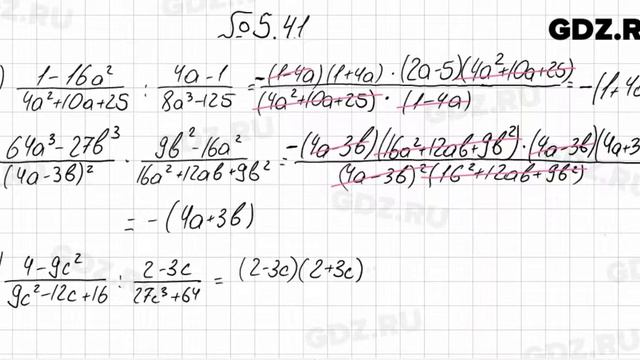 №5.41
GDZ.RU
) (1-16a²)/(4a²+10a+25) : (4a-1)/(8a³-125) = (-(1-4a)(1+4a)·(2a-5)(4a²+10a+25))/((4a²+10a+25)·(1-4a)) = -(1+4a
(64a³-27b³)/(4a-3b)² · (9b²-16a²)/(16a²+12ab+9b²) = (-(4a-3b)(16a²+12ab+9b²)·(4a-3b)(4a+3)/((4a-3b)²(16²+12ab+9b²)
= -(4a+3b)
) (4-9c²)/(9c²-12c+16) : (2-3c)/(27c³+64) = (2-3c)(2+3c)